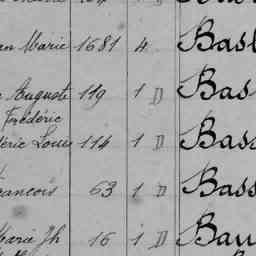 an Marie 1681 4 Bas
Auguste 119 1 D Bas
Frédéric
éric Louis 114 1 D Bass
rancois 63 1 D Bass
Marie Jh 16 1 D Bau